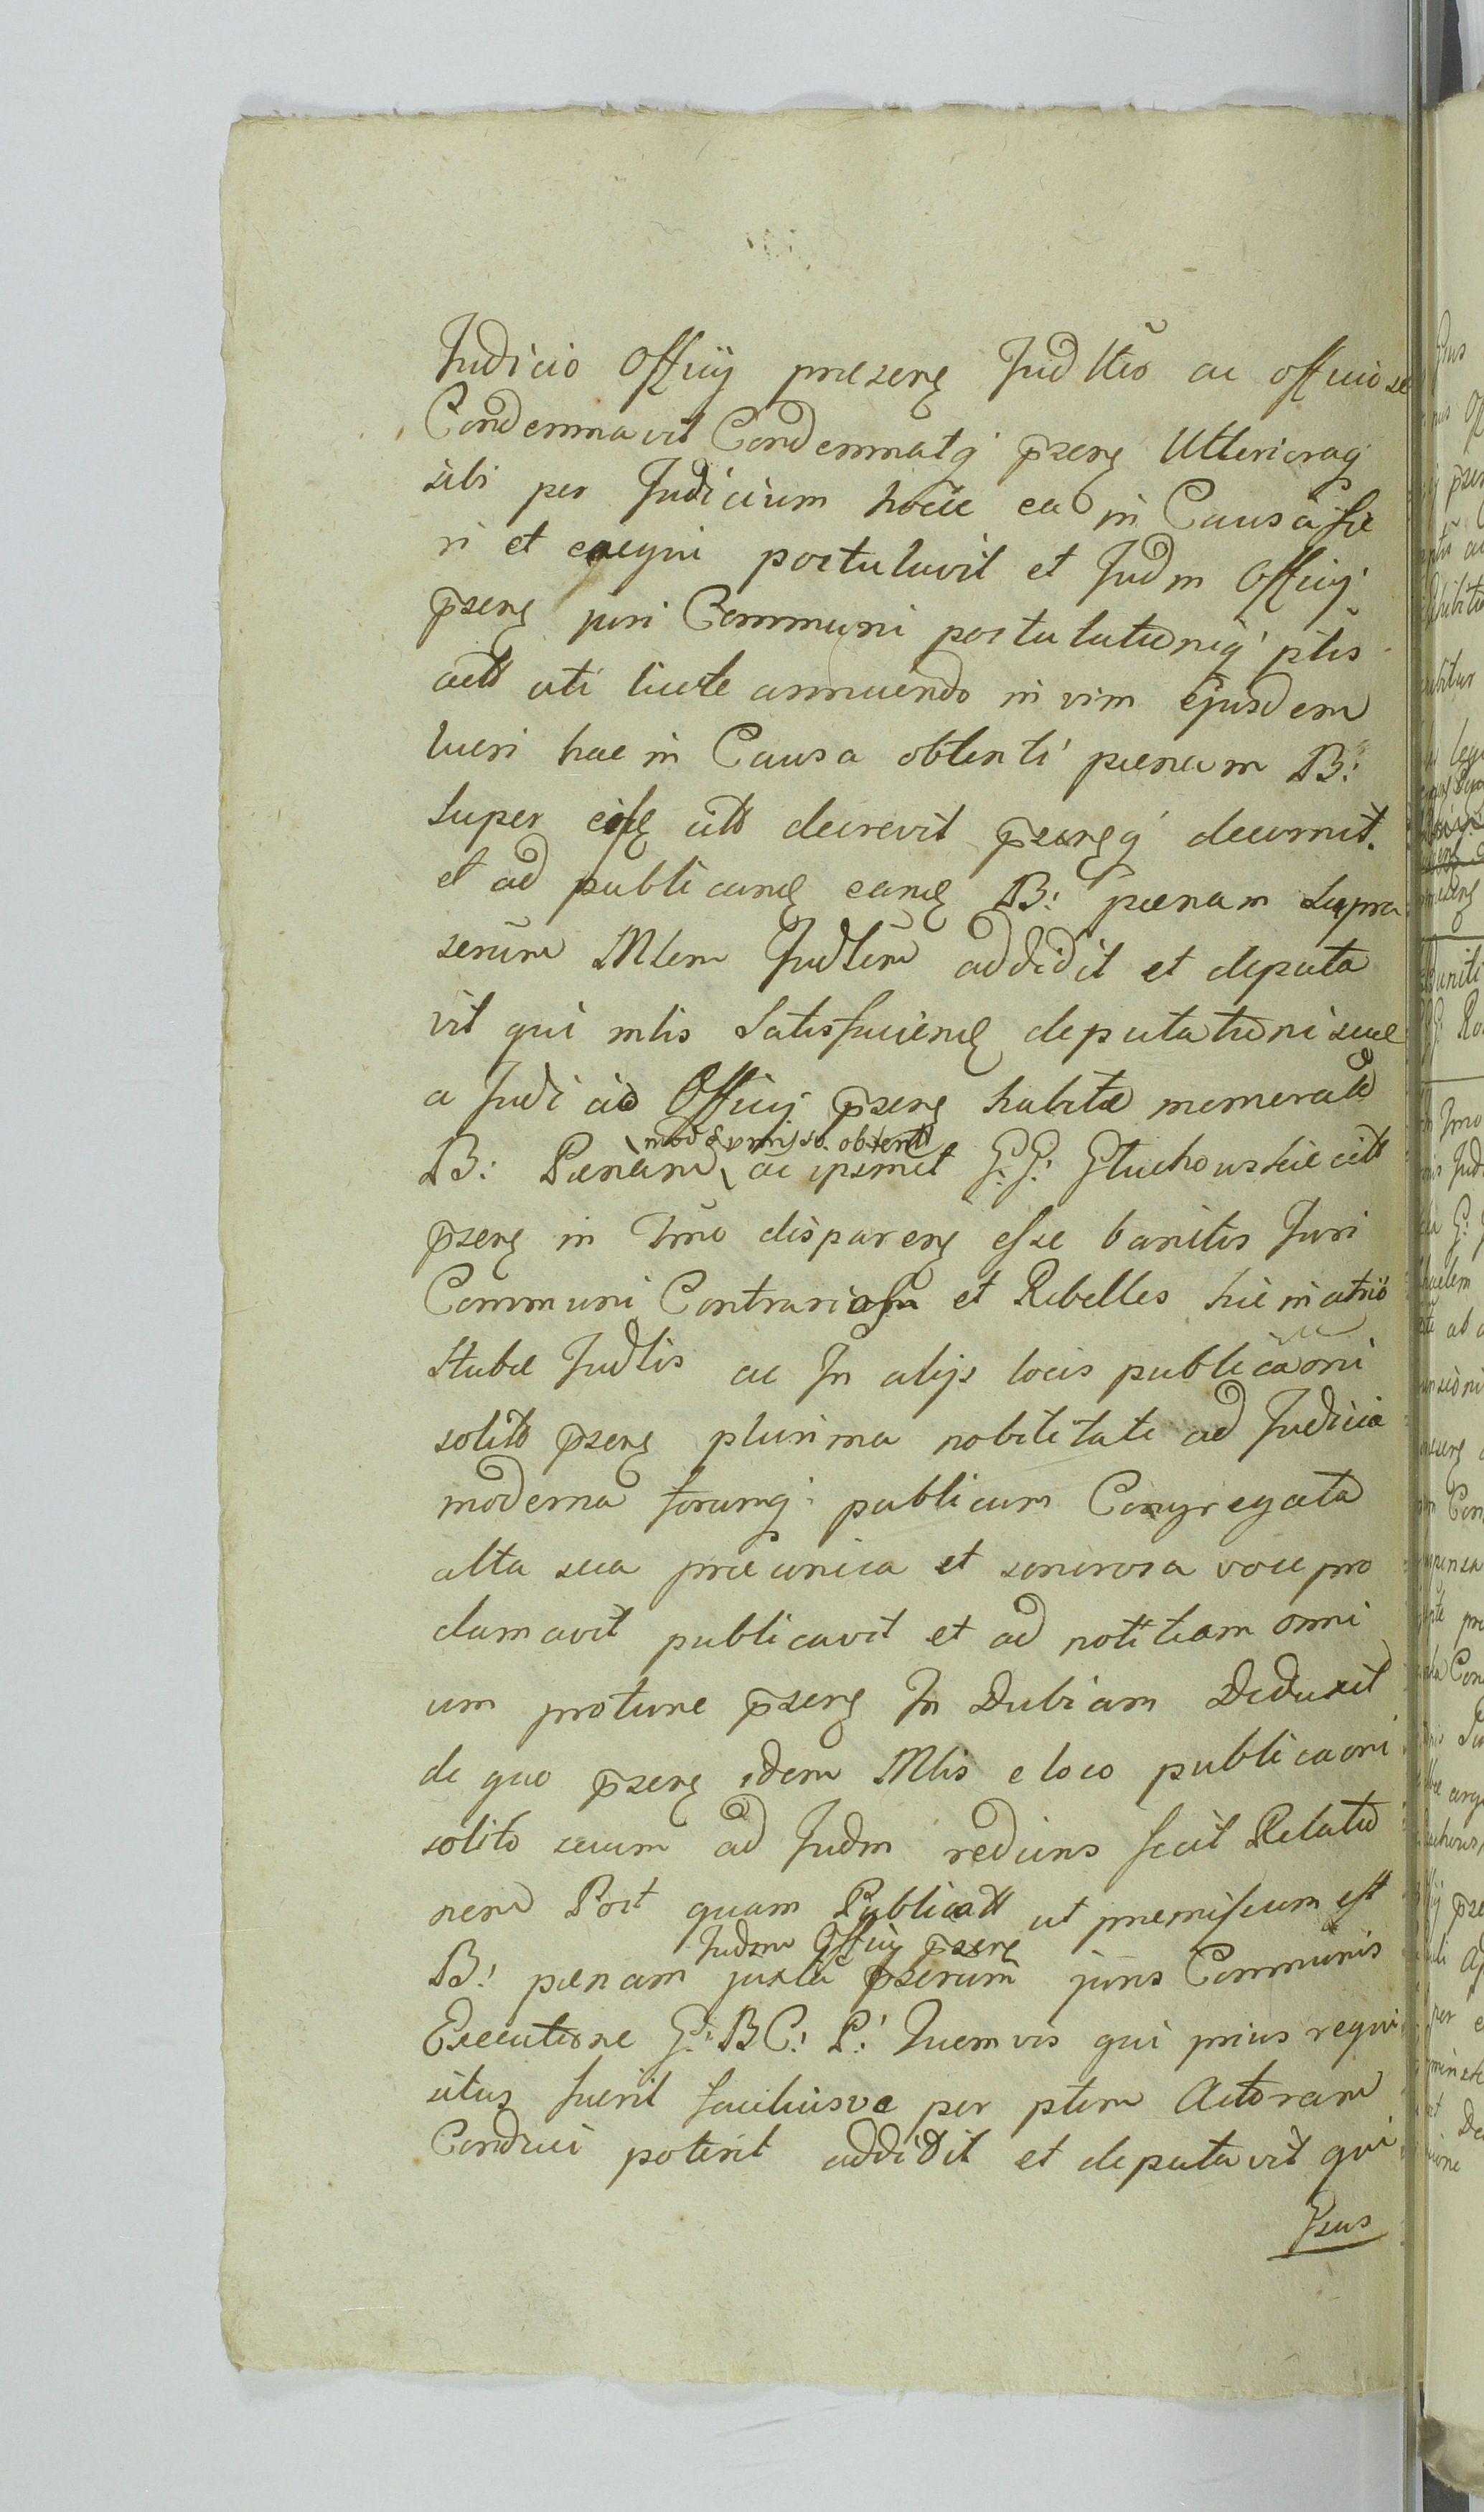 Judicio Officij praesens Judltiō ac officiose
Condemnavit Condemnatq̃ p̄sens Ulterioraq̃
sibi per Judicium hocce ea in Causa fie
ri et exequi postulavit et Judm Officij
p̄sens juri Communi postulationiq̃ ptis
actt uti licite annuendo in vim ejusdem
lucri hac in Causa obtenti paenam B:
super citt decrevit p̄sensq̃ decernit.
et ad publicand eand B: paenam supra
serūm Mlem Judlem addidit et deputa
vit qui mlis Satisfaciend deputationi suae
a Judicio Officij p̄sens habitae memeratt
B: Paenam \modo praemisso obtentt\ ac ipsmet G.G: Głuchowskie citt
p̄sens in Tmō disparens esse banitos Juri
Communi Contrarios et Rebelles hic in atrio
Stubae Judlis ac In alijs locis publicaōni
solitt p̄sens plurima nobilitate ad Judicia
moderna forumq̃ publicum Congregata
alta sua praeconica et sonorosa voce pro
clamavit publicavit et ad notitiam omni
um protunc p̄sens In Dubiam Deduxit
de quo p̄sens idem Mlis e loco publicaoni
solito suum ad Judm rediens fecit Relatio
nem Post quam Publicatt ut praemissum est
B: paenam Judm Officij p̄sens juxta p̄serum juris Communis
Executione G: B C: P: Quemvis qui prius requi
situs fuerit faciliusve per ptem Actoram
Conduci poterit addidit et deputavit qui
Gsus